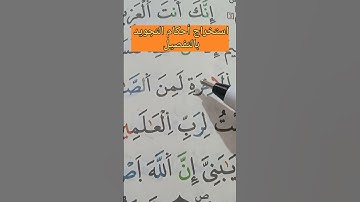 إِنَّكَ أَنتَ ٱلْعَزِ
استخراج أحكام التجويد
بالتفصيل
لَمِنَ ٱلصَّ
تُ لِرَبِّ ٱلْعَٰلَمِي
يَٰبَنِىَّ إِنَّ ٱللَّهَ ٱصْ